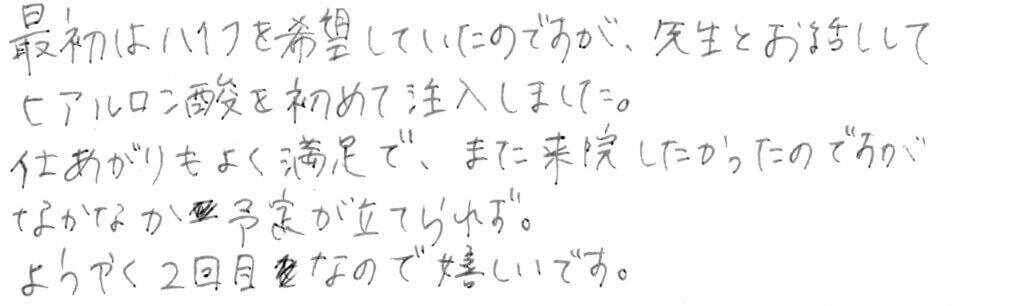 最初はハイフを希望していたのですが、先生とお話しして
ヒアルロン酸を初めて注入しました。
仕あがりもよく満足で、また来院したかったのですが
なかなか予定が立てられず。
ようやく2回目なので嬉しいです。